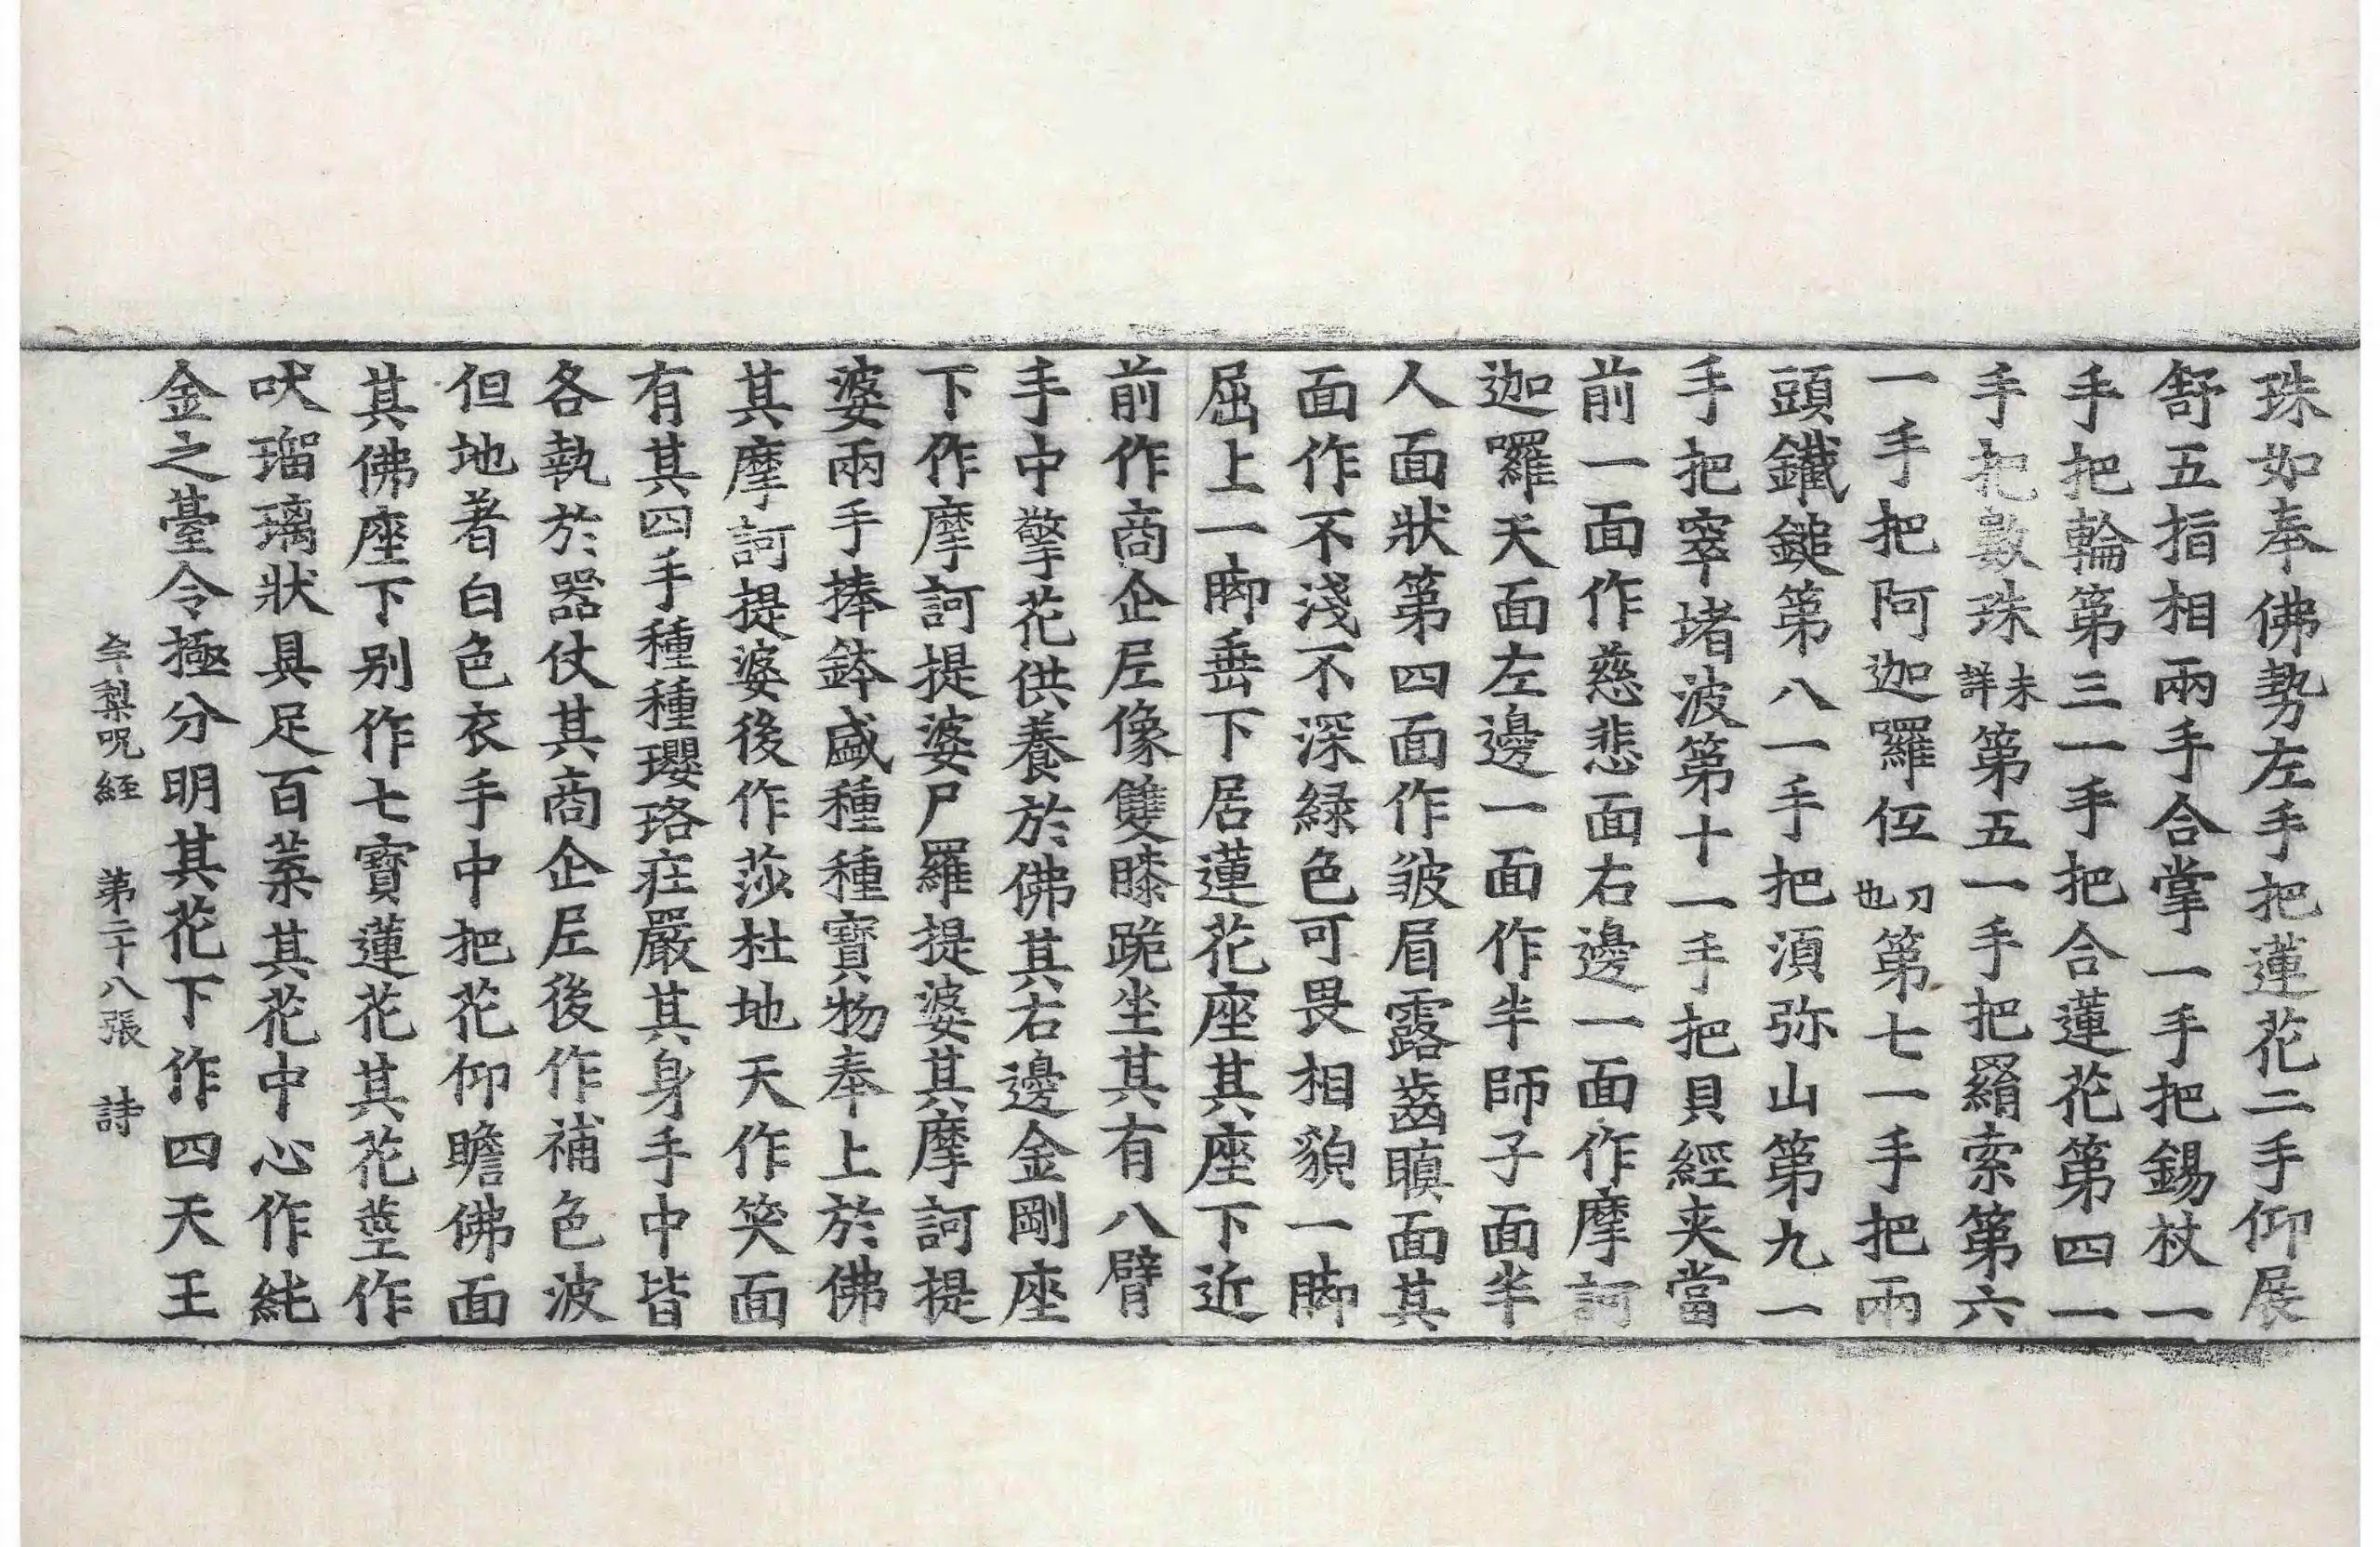 珠如奉佛勢左手把蓮花二手仰展
舒五指相兩手合掌一手把錫杖一
手把輪第三一手把合蓮花第四一
手把數珠未詳第五一手把羂索第六
一手把阿迦囉伍刀也第七一手把兩
頭鐵鎚第八一手把須弥山第九一
手把窣堵波第十一手把貝經夾當
前一面作慈悲面右邊一面作摩訶
迦囉天面左邊一面作半師子面半
人面狀第四面作皱眉露齒瞋面其
面作不淺不深緑色可畏相貌一脚
屈上一脚垂下居蓮花座其座下近
前作商企𡱈像雙膝跪坐其有八臂
手中擎花供養於佛其右邊金剛座
下作摩訶提婆尸羅提婆其摩訶提
婆兩手捧鉢盛種種寶物奉上於佛
其摩訶提婆後作莎杜地天作笑面
有其四手種種瓔珞㽵嚴其身手中皆
各執於器仗其商企𡱈後作補色波
但地著白色衣手中把花仰瞻佛面
其佛座下別作七寶蓮花其花莖作
吠瑠璃狀具足百葉其花中心作純
金之臺令極分明其花下作四天王
牟梨呪経 第二十八張 詩